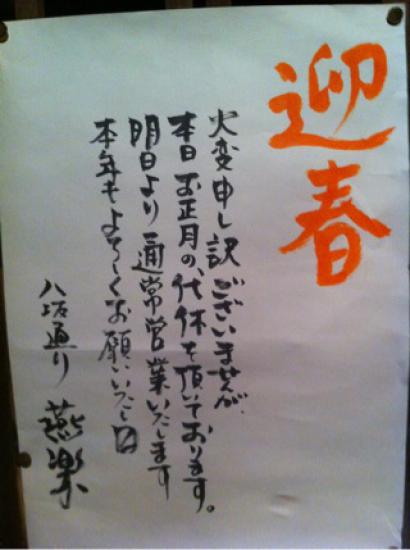 迎春
大変申し訳ございませんが、
本日お正月の、代休を頂いております。
明日より通常営業いたします
本年もよろしくお願いいたし〼
八坂通り 燕楽